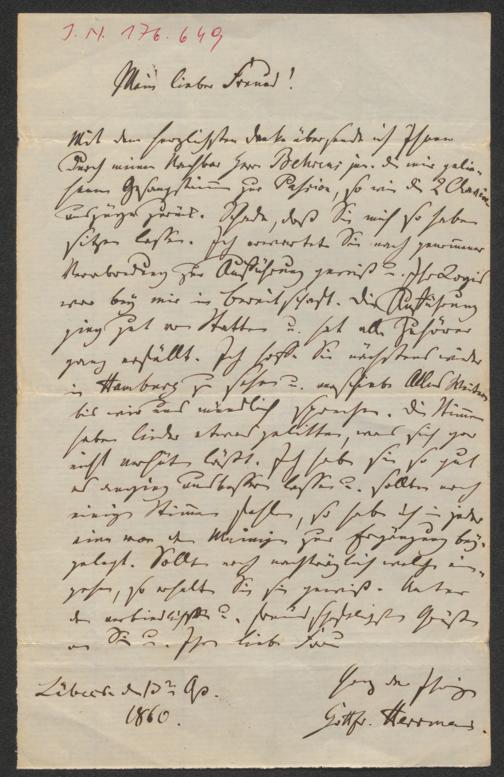 J. N. 176.649
Mein lieber Freund!
Mit dem herzlichsten Danke übersende ich Ihnen
durch meinen Nachbar Herrn Behrens jun. die mir gelie-
henen Gesangstimmen zur Passion, so wie die 2 Clavier-
auszüge zurück. Schade, daß Sie mich so haben
sitzen lassen. Ich erwartete Sie nach genommener
Verabredung zur Aufführung gewiß u. Ihr Logis
war bey mir in Bereitschaft. Die Aufführung
ging gut von Statten u. hat alle Zuhörer
ganz erfüllt. Ich hoffe Sie nächstens wieder
in Hamburg zu sehen u. verschiebe Alles Weitere
bis wir uns mündlich sprechen. Die Stimmen
haben leider etwas gelitten, was sich gar
nicht verhüten läßt. Ich habe sie so gut
es anging ausbessern lassen u. sollten noch
einige Stimmen fehlen, so habe ich in jeder
eine von den Meinigen zur Ergänzung bey-
gelegt. Sollten noch nachträglich welche ein-
gehen, so erhalten Sie sie gewiß. Unter
den verbindlichsten u. freundschaftlichsten Grüßen
an Sie u. Ihre liebe Frau
Ganz der Ihrige
Lübeck d. 13ten Ap.
1860.
Gottfr. Herrmann.